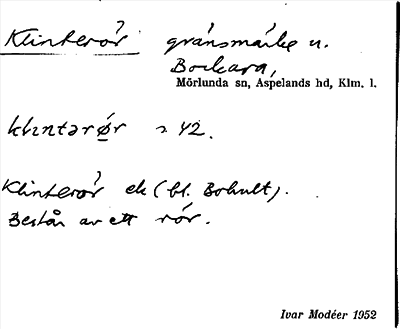 Klinterör gränsmärke n.
Bockara,
Mörlunda sn, Aspelands hd, Klm. l.
klıntərø̱r s. 42.
Klinterör ek (bl. Bohult).
Består av ett rör.
Ivar Modéer 1952